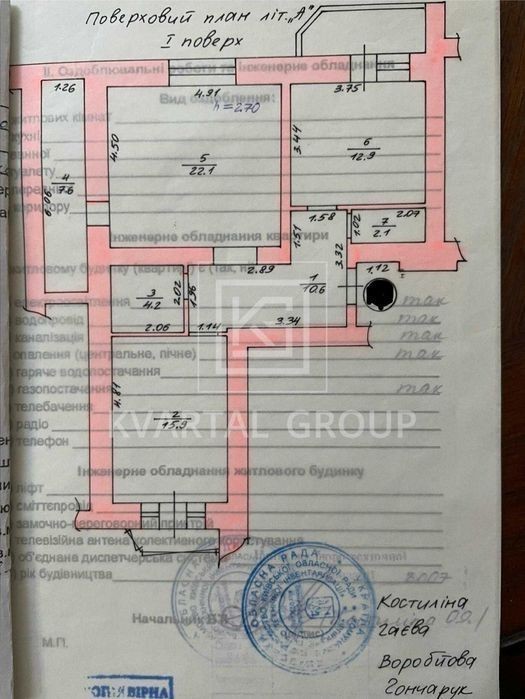 Поверховий план літ. „А"
I поверх
II. Оздоблювальні роботи та інженерне обладнання
Вид оздоблення:
житлових кімнат
1.26
4.91
3.75
h=2.70
4.50
3.44
5
22.1
6
12.9
4
7.6
6.06
коридору
1.58
2.07
1.51
1.02
7
2.1
Інженерне обладнання квартири
3.32
2.89
1.12
3
4.2
2.02
1.96
1
10.6
так
водопровід
так
каналізація
2.06
1.14
3.34
так
опалення (центральне, пічне)
так
гаряче водопостачання
газопостачання
так
телебачення
4.81
2
15.9
радіо
KVARTAL GROUP
телефон
Інженерне обладнання житлового будинку
ліфт
сміттєпровід
замочно-переговорний пристрій
телевізійна антена колективного користування
об'єднана диспетчерська система
рік будівництва
2007
Начальник
М.П.
Костиліна
Гаєва
Воробйова
Гончарук
ВІРНА